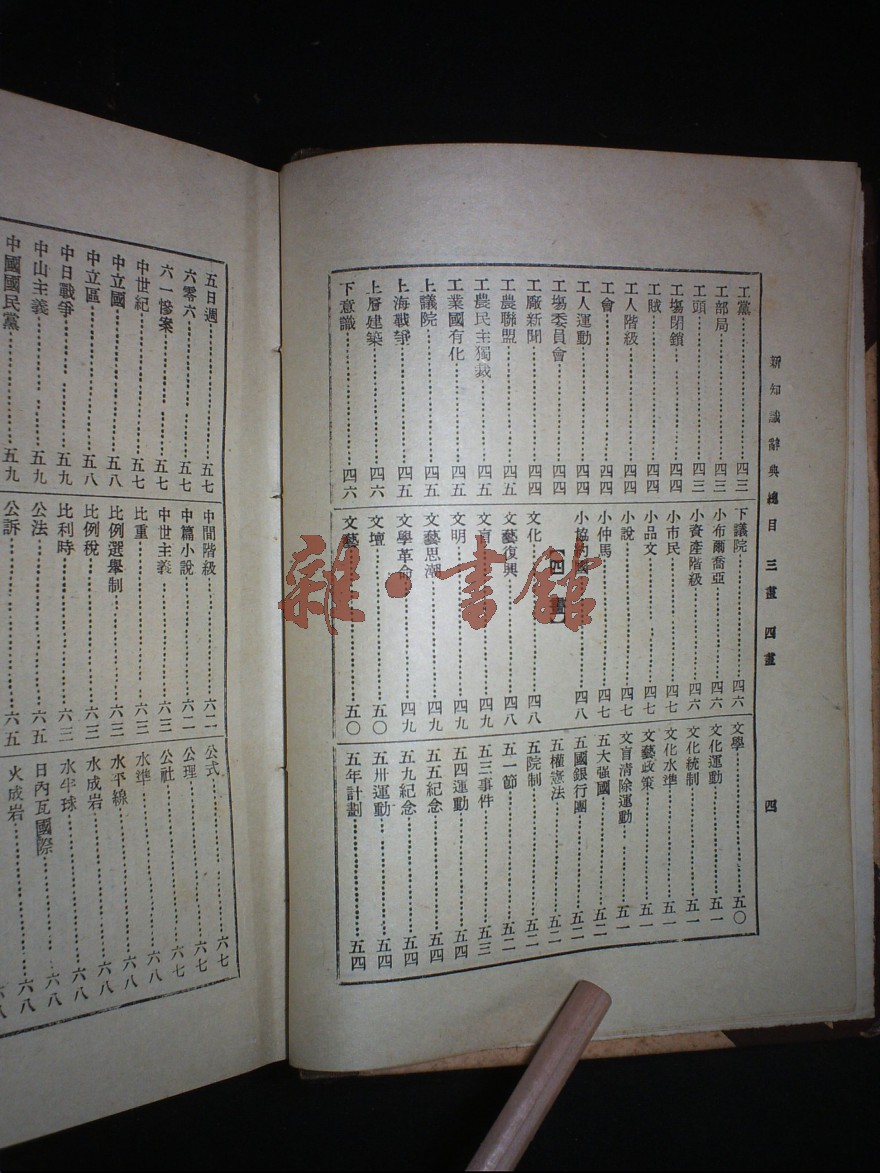 新知識辭典總目 三畫 四畫
四
工黨 四三
工部局 四三
工頭 四三
工塲閉鎖 四四
工賊 四四
工人階級 四四
工會 四四
工人運動 四四
工塲委員會 四四
工廠新聞 四四
工農聯盟 四五
工農民主獨裁 四五
工業國有化 四五
上議院 四五
上海戰爭 四五
上層建築 四六
下意識 四六
下議院 四六
小布爾喬亞 四六
小資產階級 四六
小市民 四七
小品文 四七
小說 四七
小仲馬 四七
小協約國 四八
【四畫】
文化 四八
文藝復興 四八
文盲 四九
文明 四九
文藝思潮 四九
文學革命 四九
文壇 五〇
文藝 五〇
文學 五〇
文化運動 五一
文化統制 五一
文化水準 五一
文藝政策 五一
文盲清除運動 五一
五大强國 五二
五國銀行團 五二
五權憲法 五二
五院制 五二
五一節 五二
五三事件 五三
五四運動 五四
五五紀念 五四
五九紀念 五四
五卅運動 五四
五年計劃 五四
五日週 五七
六零六 五七
六一慘案 五七
中世紀 五七
中立國 五八
中立區 五八
中日戰爭 五九
中山主義 五九
中國國民黨 五九
中間階級 六二
中篇小說 六二
中世主義 六三
比重 六三
比例選舉制 六三
比例稅 六三
比利時 六三
公法 六五
公訴 六五
公式 六七
公理 六七
公社 六七
水準 六八
水平線 六八
水成岩 六八
水半球 六八
日內瓦國際 六八
火成岩 六八
雜·書館